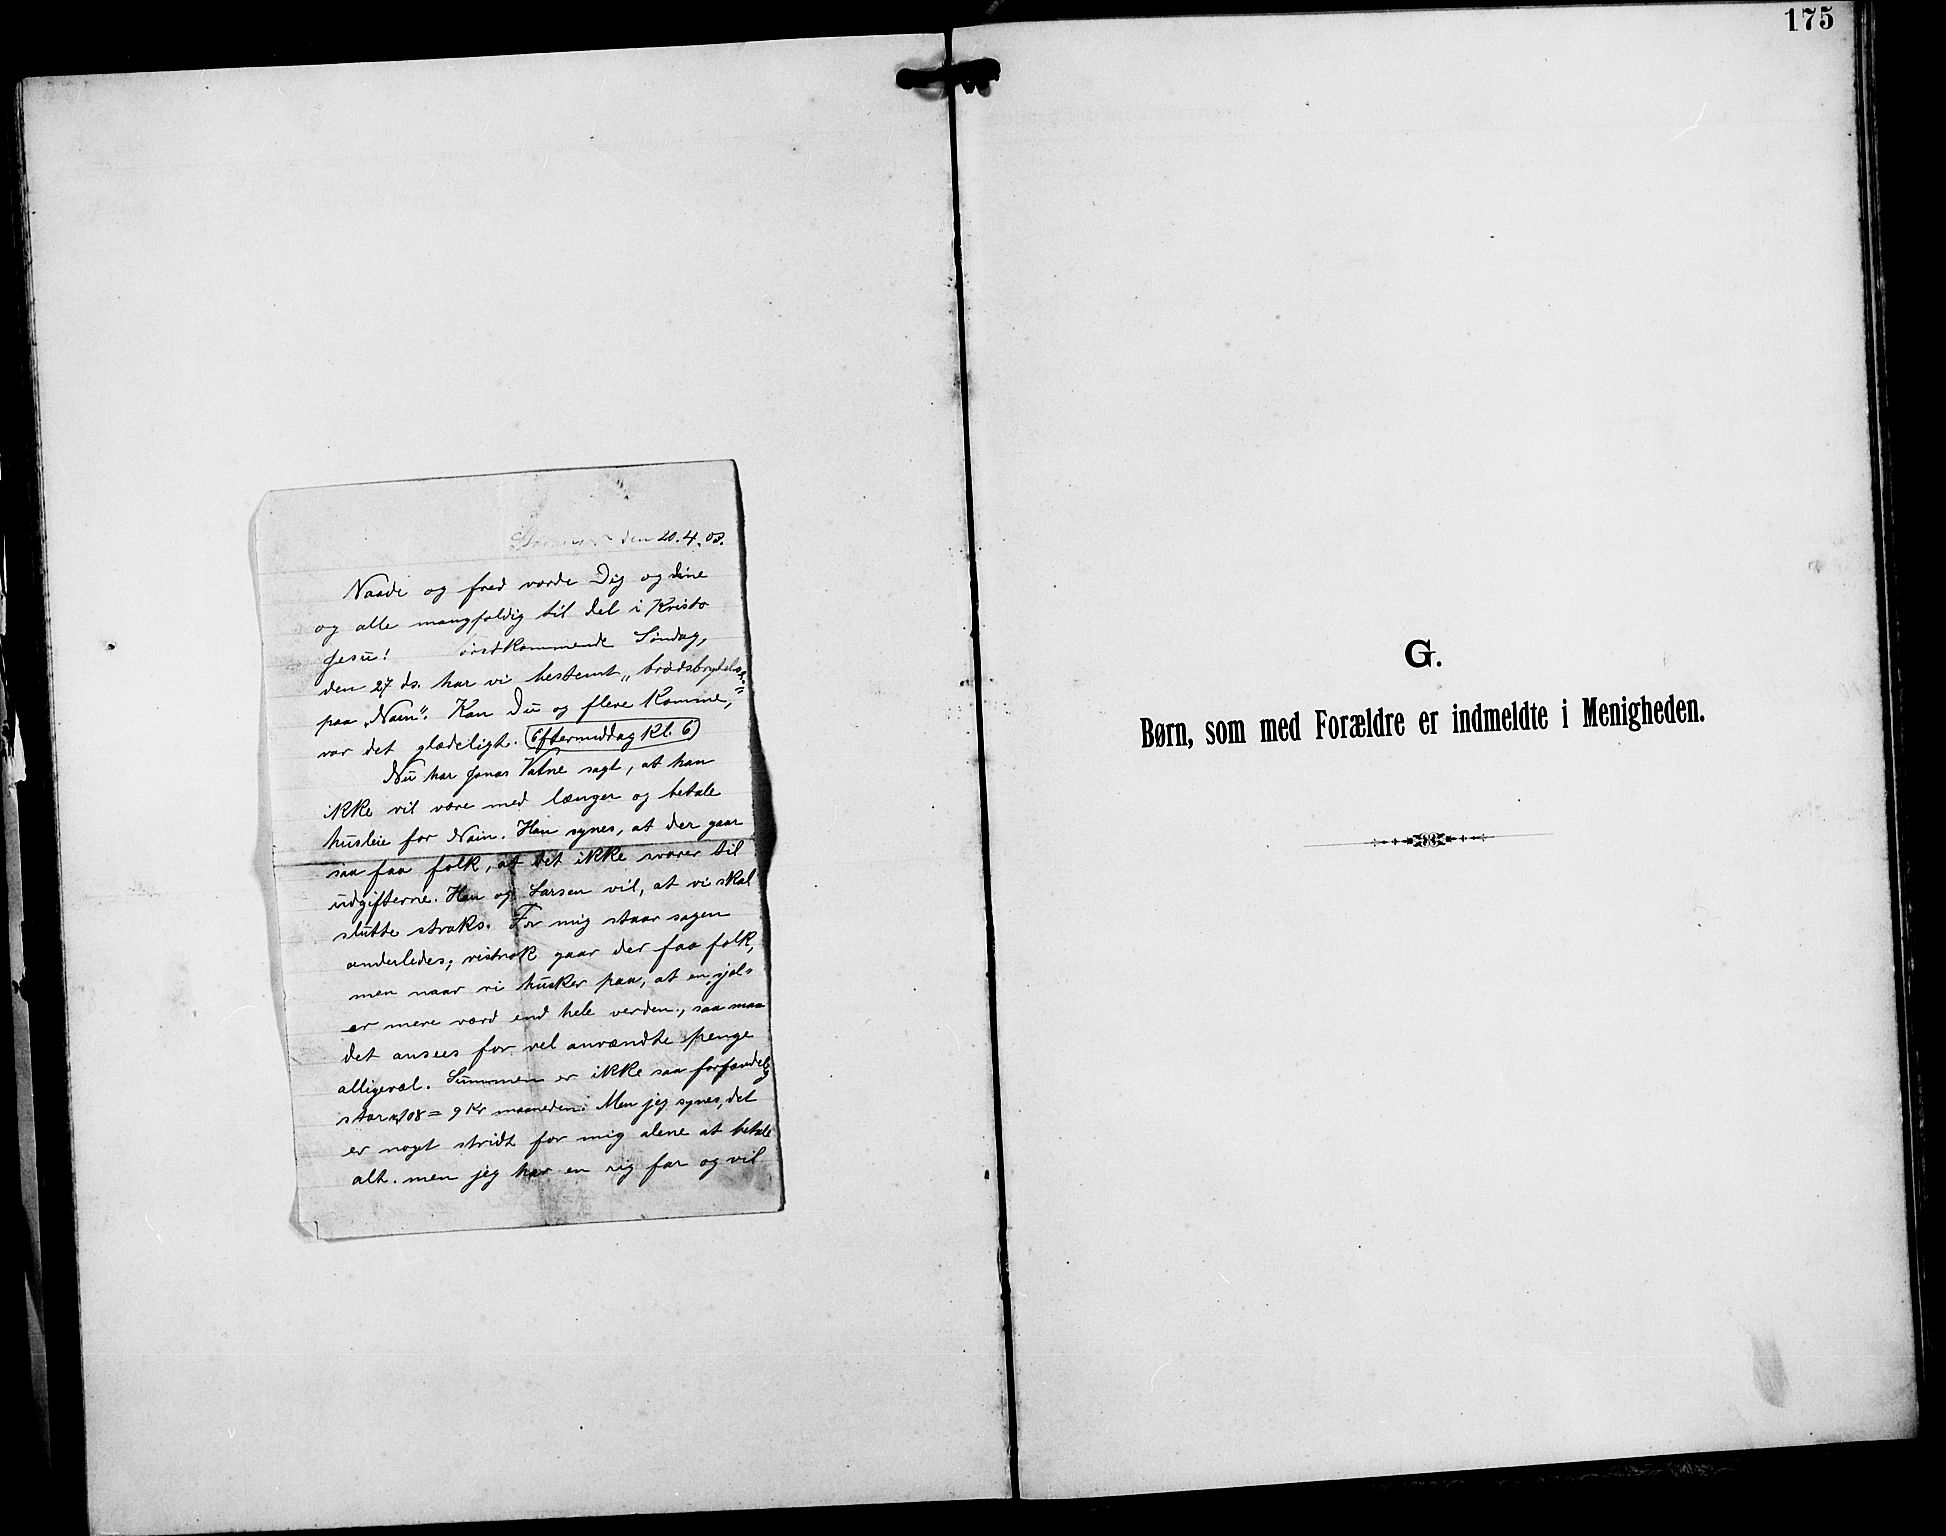 den 20.4.03.
Naade og fred vorde Dig og dine
og alle mangfoldig til del i Kristo
Jesu! Førstkommende Søndag,
den 27 ds. har vi bestemt „brødsbrydelse"
paa „Nain". Kan Du og flere komme,
var det glædeligt. (Eftermiddag Kl. 6)
Nu har Jonas Vatne sagt, at han
ikke vil være med længer og betale
husleie for Nain. Han synes, at der gaar
saa faa folk, at det ikke svarer til
udgifterne. Han og Larsen vil, at vi skal
slutte straks. For mig staar sagen
anderledes; vistnok gaar der faa folk,
men naar vi husker paa, at en sjæl
er mere værd end hele verden, saa maa
det ansees for vel anvendte penge
alligevæl. Summen er ikke saa forfærdelig
stor 108 = 9 Kr maaneden. Men jeg synes, det
er noget stridt for mig alene at betale
alt. men jeg har en rig far og vil
175
G.
Børn, som med Forældre er indmeldte i Menigheden.